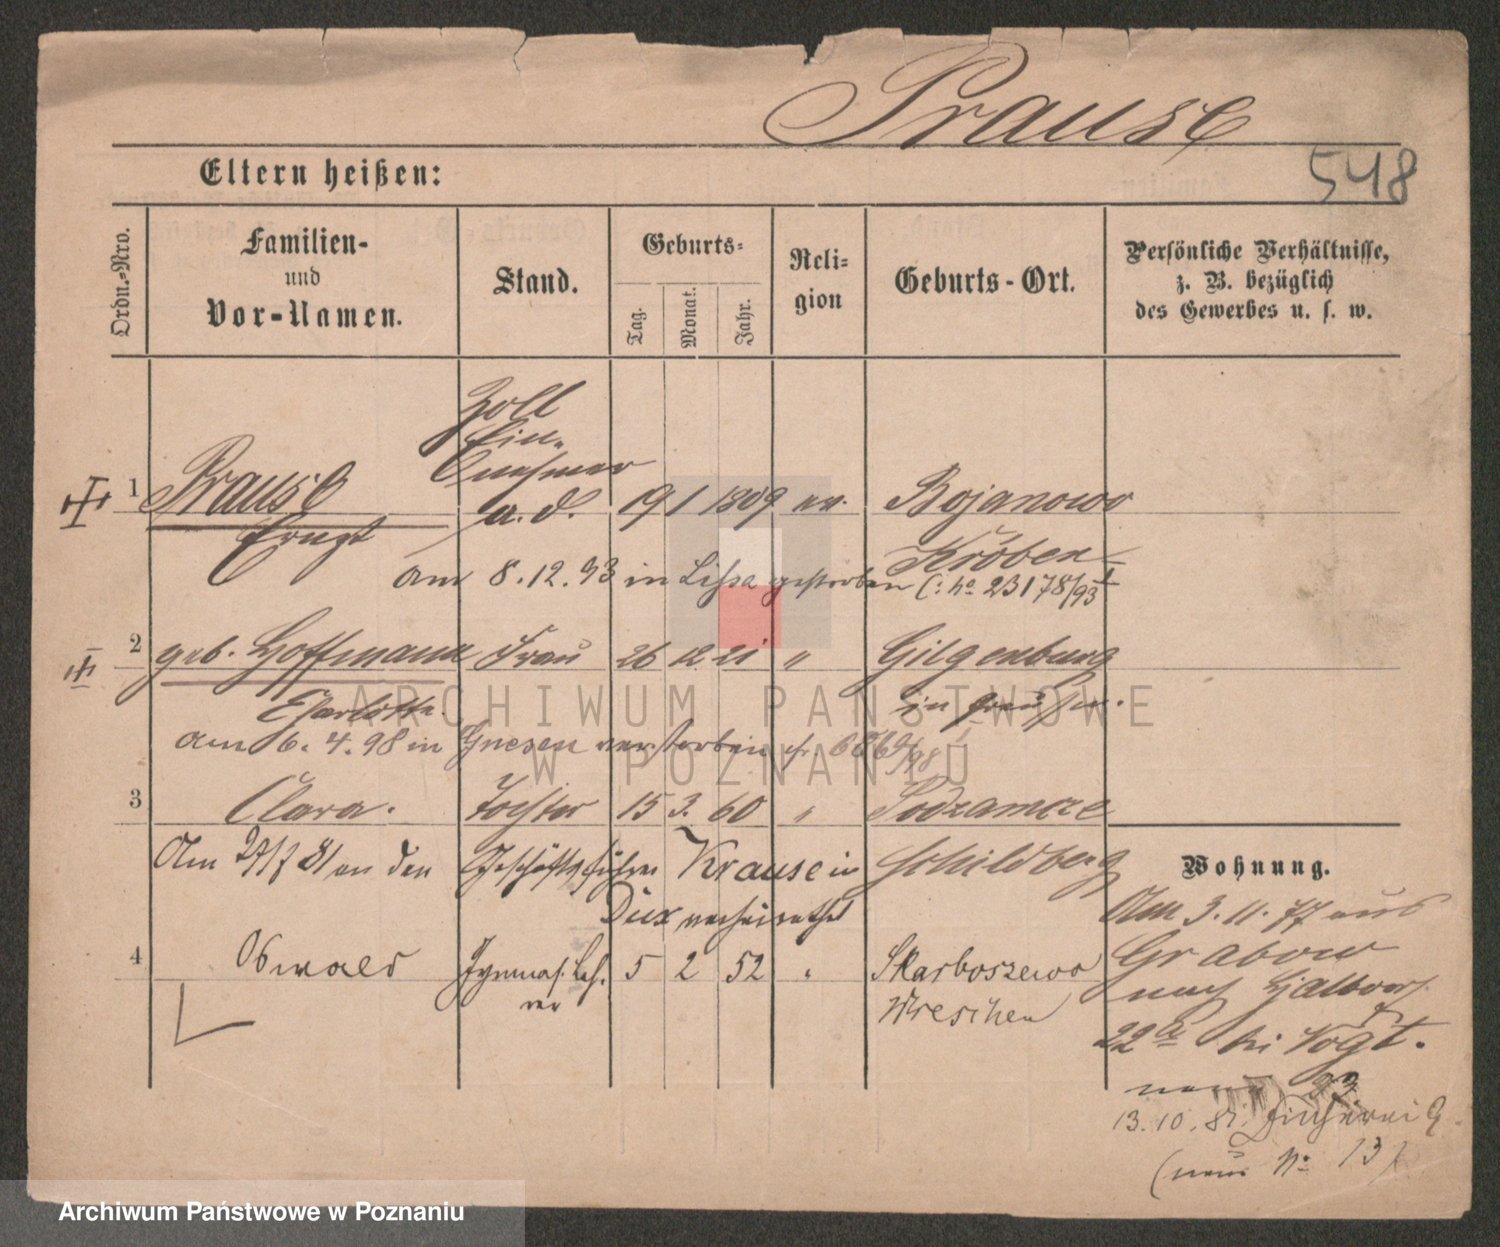 Prause
548
Eltern heißen:
Ordn.-Nro.
Familien-
und
Vor-Namen.
Stand.
Geburts-
Tag.
Monat.
Jahr.
Reli-
gion
Geburts-Ort.
Persönliche Verhältnisse,
z. B. bezüglich
des Gewerbes u. s. w.
1 Prause
Ernst
Zoll
Ein-
nehmer
a. D.
19 1 1809 ev. Bojanowo
Kröben
am 8.12.93 in Lissa gestorben
2 geb. Hoffmann Frau 26 12 21 " Gilgenburg
Charlotte in Preußen.
am 6.4.98 in Gnesen verstorben
3 Clara. Tochter 15 3. 60 " Podzamcze
Am an den Geschäftsführer Krause in Schildberg
Dux verheirathet
4 Oswald Gymnas. Leh- 5 2 52 " Skarboszewo
rer Wreschen
Wohnung.
Am 3.11.77 aus
Grabow
nach Halbdorfstr
22 a bei Vogt.
13.10.81.
(neue No 13)
ARCHIWUM PAŃSTWOWE
W POZNANIU
Archiwum Państwowe w Poznaniu